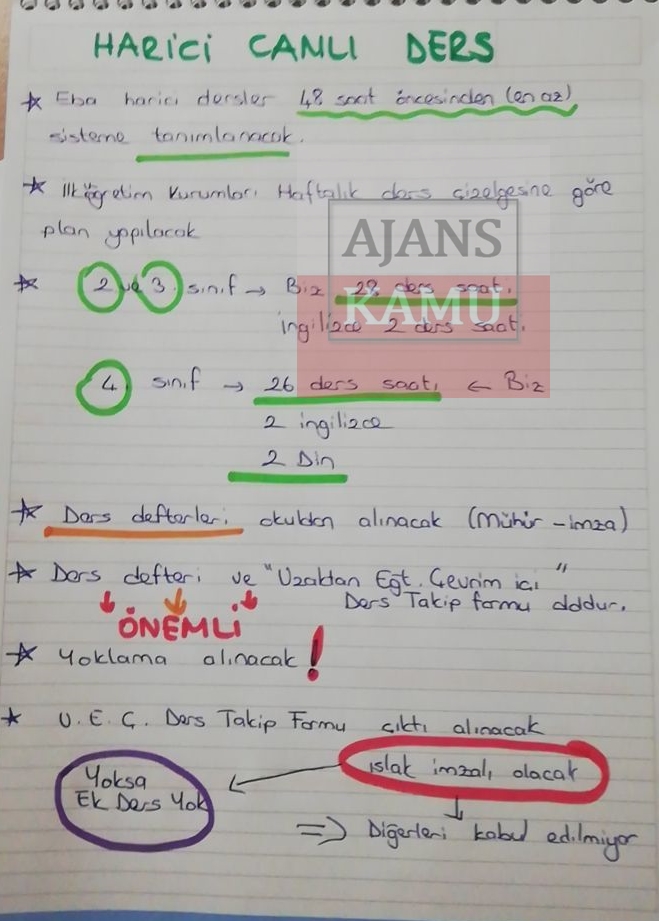 HARİCİ CANLI DERS
* Eba harici dersler 48 saat öncesinden (en az)
sisteme tanımlanacak.
* İlköğretim Kurumları Haftalık ders çizelgesine göre
plan yapılacak
AJANS
KAMU
* 2 ve 3. sınıf → Biz 28 ders saati.
ingilizce 2 ders saati.
4 sınıf → 26 ders saati ← Biz
2 ingilizce
2 Din
* Ders defterleri okuldan alınacak (Mühür - imza)
* Ders defteri ve "Uzaktan Eğt. Çevrim içi"
Ders Takip formu dddur.
ÖNEMLİ
* Yoklama alınacak !
* U.E.Ç. Ders Takip Formu çıktı alınacak
ıslak imzalı olacak
Yoksa
Ek Ders Yok
=> Diğerleri kabul edilmiyor